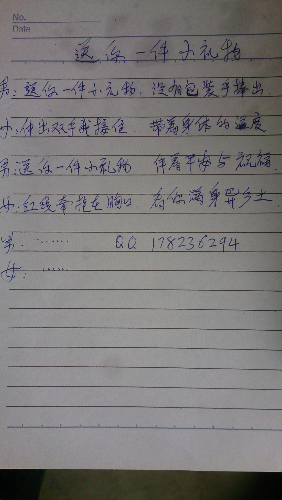 No.
Date
送你一件小礼物
男:送你一件小礼物 没有包装手捧出
女:伸出双手我接住 带着身体的温度
男:送你一件小礼物 伴着平安与祝福
女:红线牵挂在胸口 看你满身异乡土
男:…… QQ 178236294
女:……